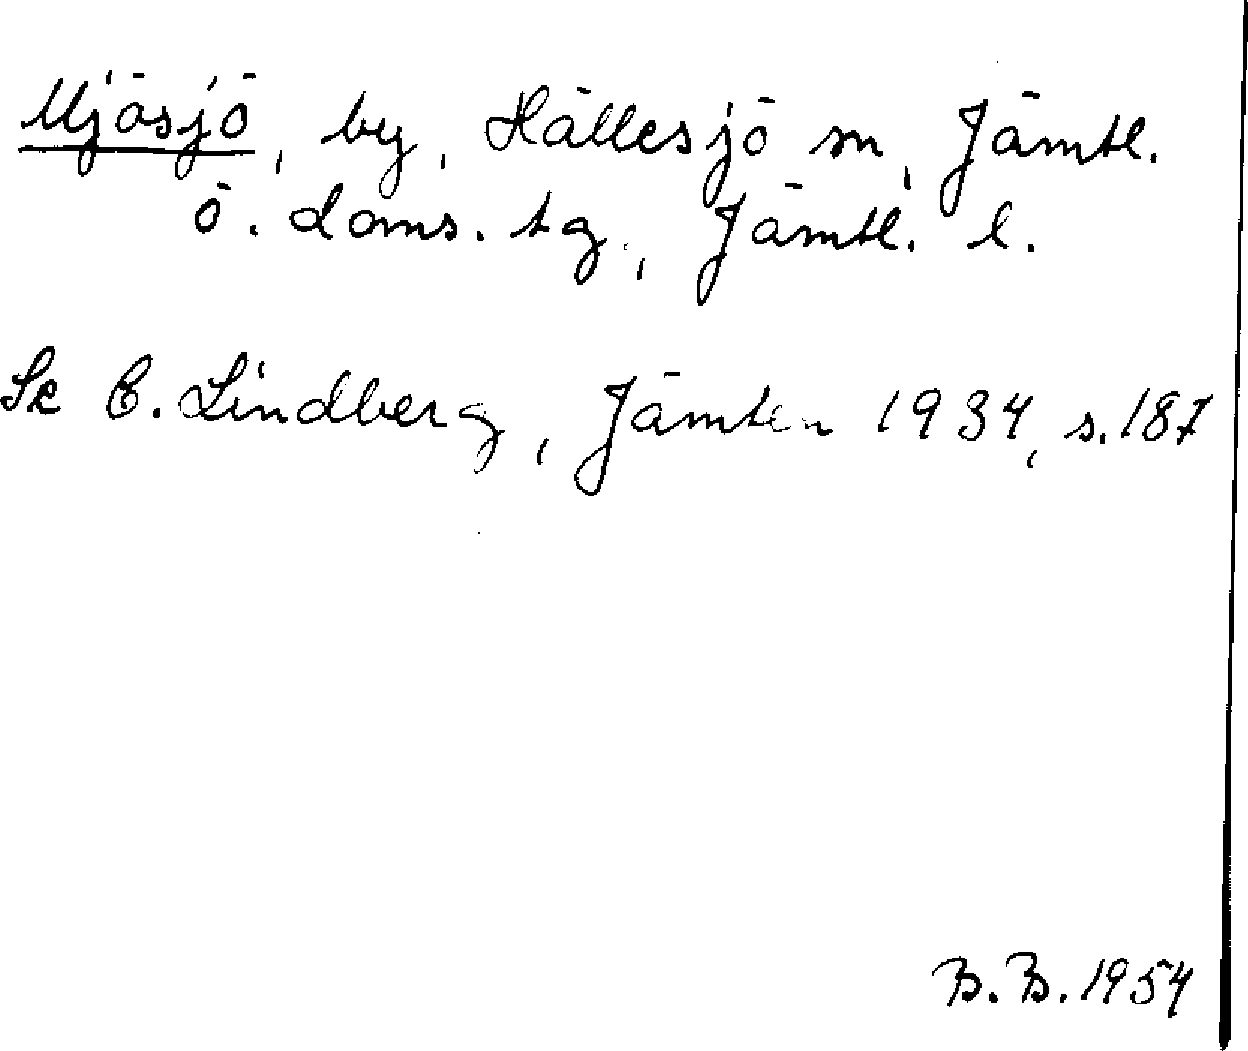 Mjösjö, by, Hällesjö sn, Jämtl.
ö. doms. tg., Jämtl. l.
Se C. Lindberg, Jämten 1934, s. 187
B. B. 1954